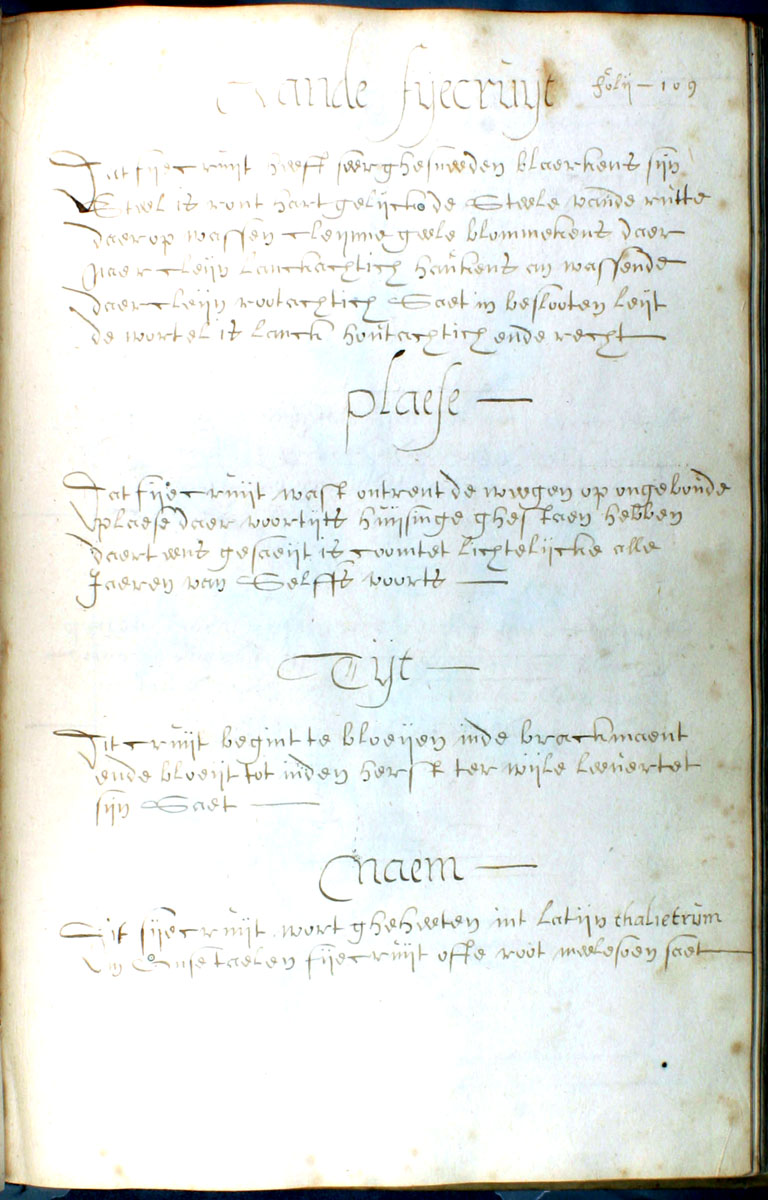 Vande fijecruijt folij - 109
Dat fijecruijt heeft seer ghesneeden blaerkens sijn
Steel is ront hart gelijck de Steele vande rutte
daer op wassen cleijnne geele blommekens daer
naer cleijn lanckachtich haukens an wassende
daer cleijn rootachtich Saet in beslooten leijt
de wortel is lanck houtachtich ende recht
plaese
Dat fijecruijt wast ontrent de weegen op ongeboude
plaese daer voortijts huijsinge ghestaen hebben
daert eens gesaeijt is coomtet lichtelijcke alle
Jaeren van Selffs voorts
Tijt
Dit cruijt begint te bloeijen inde brackmaent
ende bloeijt tot inden herfst ter wijle leevertet
sijn Saet
Naem
Dit fijecruijt wort gheheeten int Latijn thalietrum
In Onse taelen fijecruijt ofte root meelsoen saet